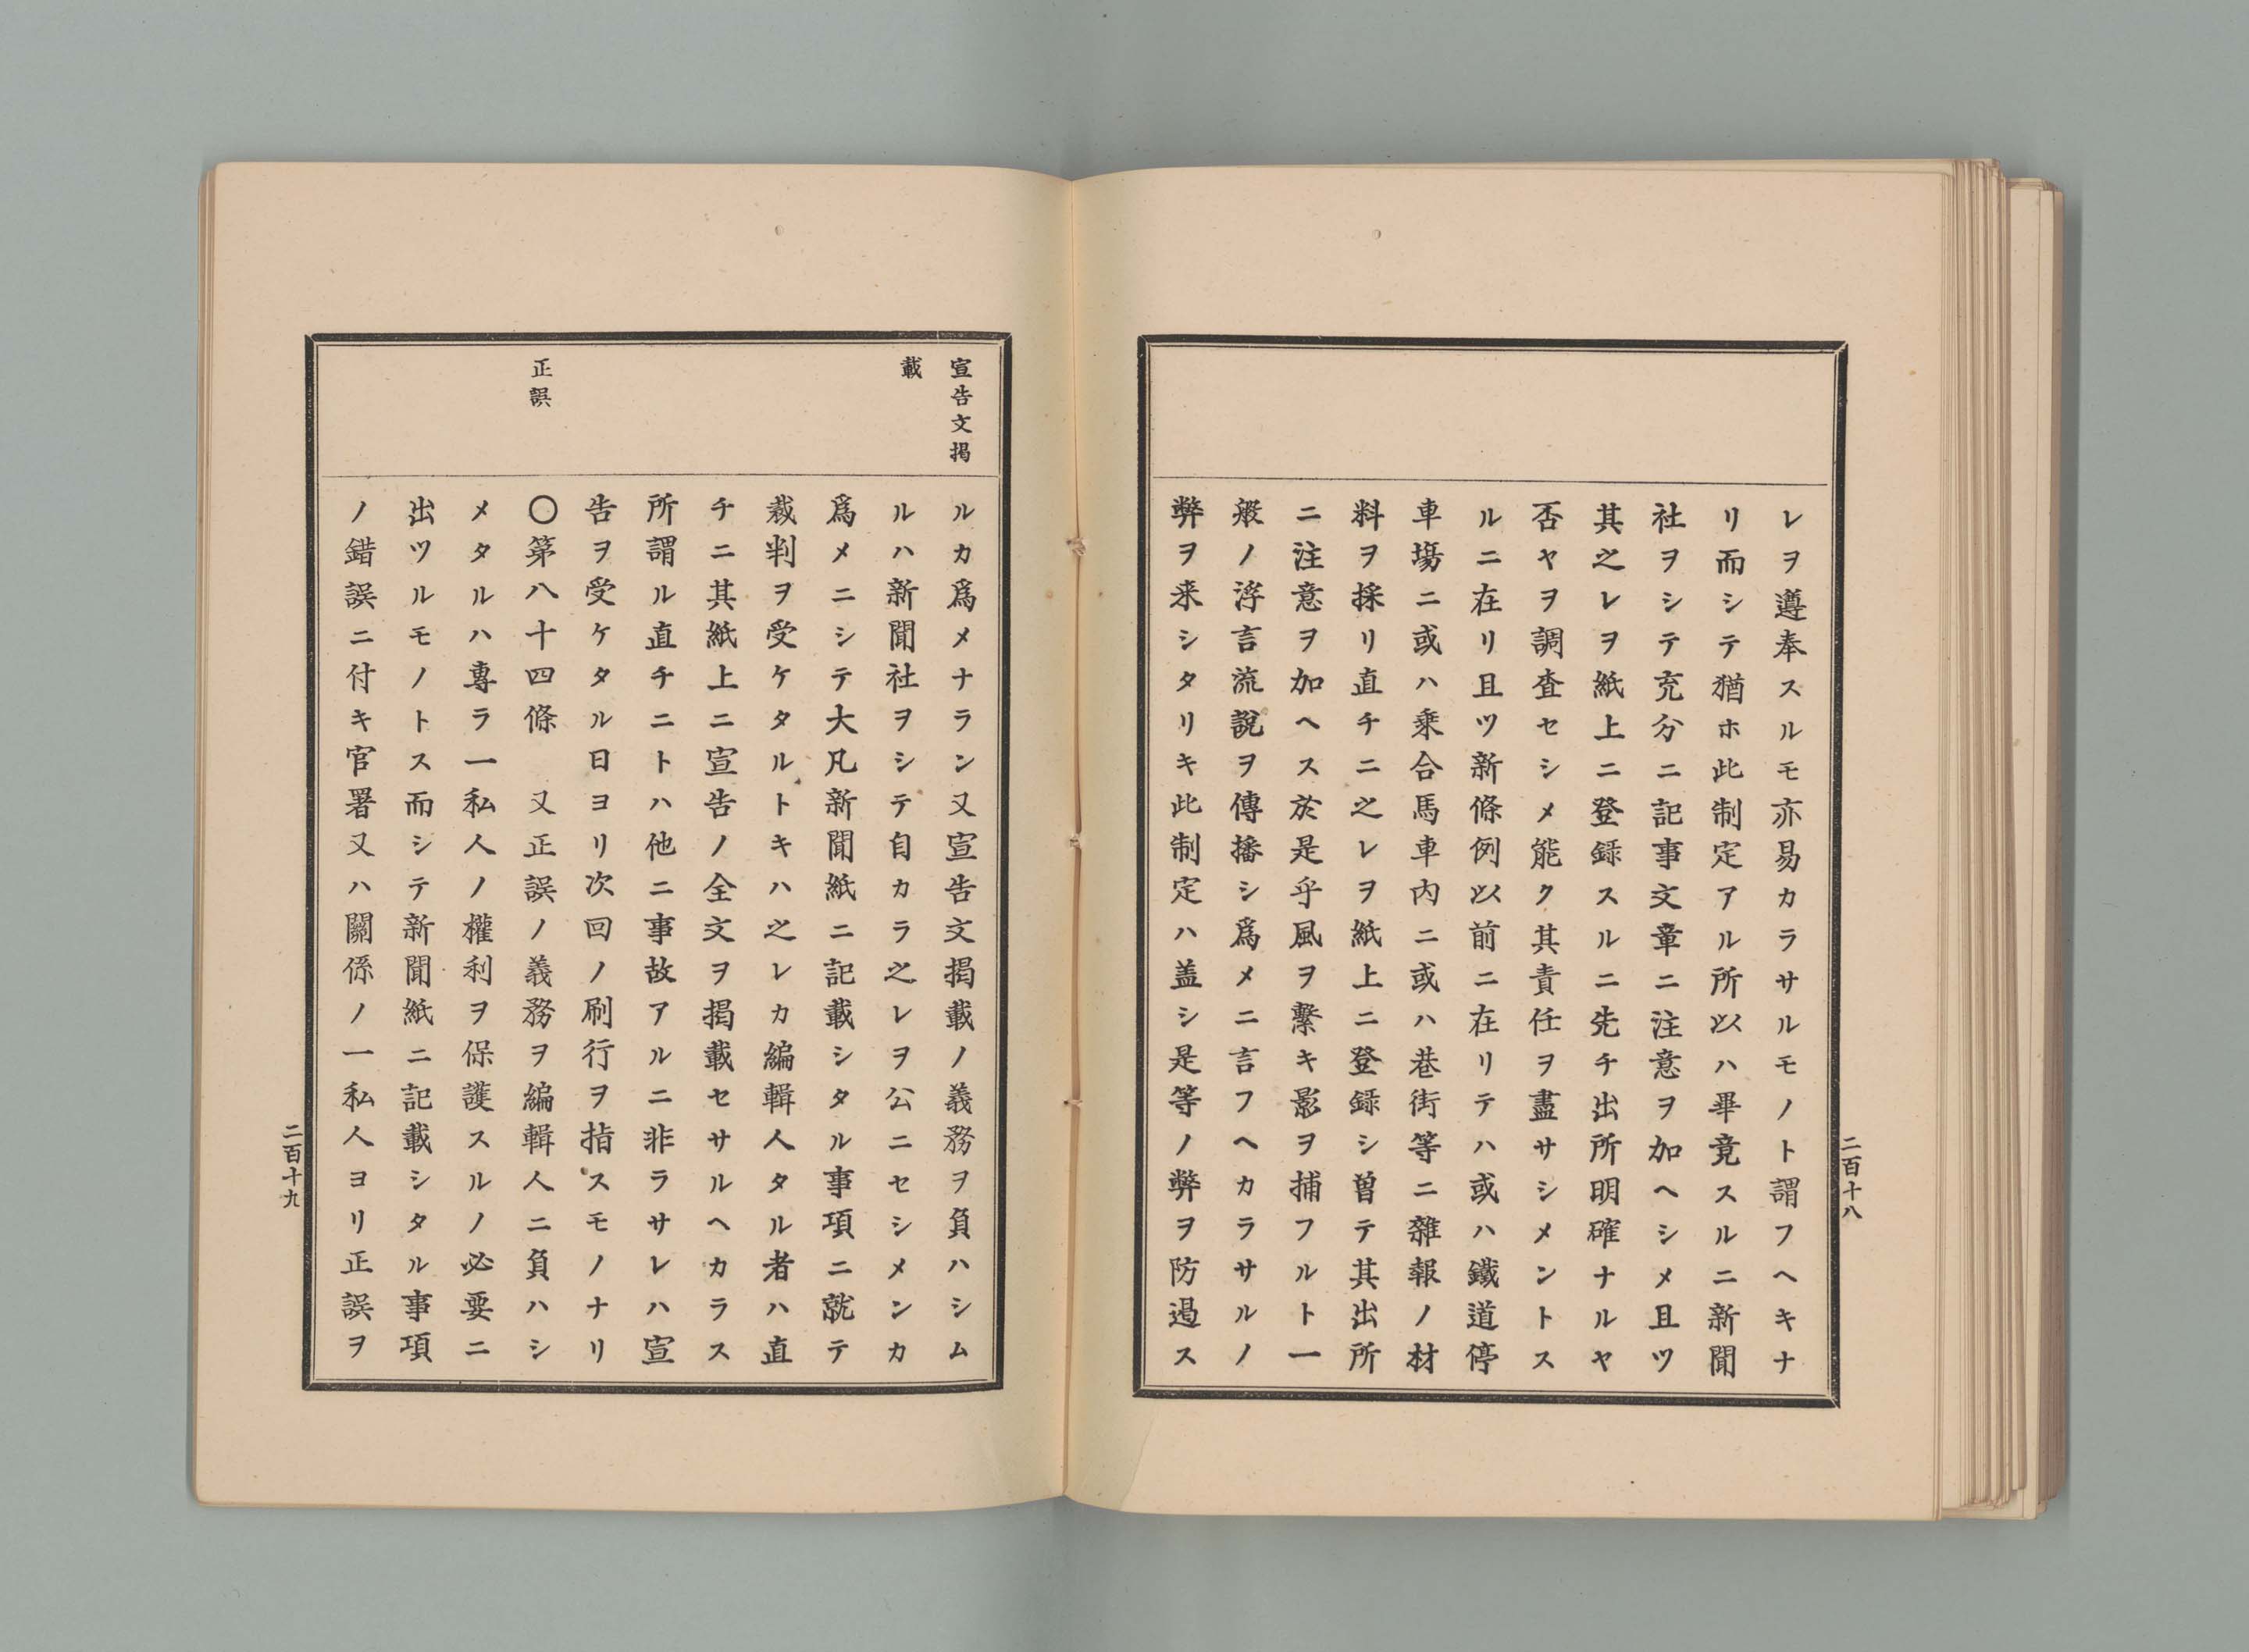 レヲ遵奉スルモ亦易カラサルモノト謂フヘキナ
リ而シテ猶ホ此制定アル所以ハ畢竟スルニ新聞
社ヲシテ充分ニ記事文章ニ注意ヲ加ヘシメ且ツ
其之レヲ紙上ニ登録スルニ先チ出所明確ナルヤ
否ヤヲ調査セシメ能ク其責任ヲ盡サシメントス
ルニ在リ且ツ新條例以前ニ在リテハ或ハ鐵道停
車塲ニ或ハ乘合馬車內ニ或ハ巷街等ニ雜報ノ材
料ヲ採リ直チニ之レヲ紙上ニ登録シ曽テ其出所
ニ注意ヲ加ヘス於是乎風ヲ繫キ影ヲ捕フルト一
般ノ浮言流說ヲ傳播シ爲メニ言フヘカラサルノ
弊ヲ来シタリキ此制定ハ盖シ是等ノ弊ヲ防遏ス
二百十八
宣告文揭
載
正誤
ルカ爲メナラン又宣告文揭載ノ義務ヲ負ハシム
ルハ新聞社ヲシテ自カラ之レヲ公ニセシメンカ
爲メニシテ大凡新聞紙ニ記載シタル事項ニ就テ
裁判ヲ受ケタルトキハ之レカ編輯人タル者ハ直
チニ其紙上ニ宣告ノ全文ヲ揭載セサルヘカラス
所謂ル直チニトハ他ニ事故アルニ非ラサレハ宣
告ヲ受ケタル日ヨリ次回ノ刷行ヲ指スモノナリ
〇第八十四條　又正誤ノ義務ヲ編輯人ニ負ハシ
メタルハ專ラ一私人ノ權利ヲ保護スルノ必要ニ
出ツルモノトス而シテ新聞紙ニ記載シタル事項
ノ錯誤ニ付キ官署又ハ關係ノ一私人ヨリ正誤ヲ
二百十九